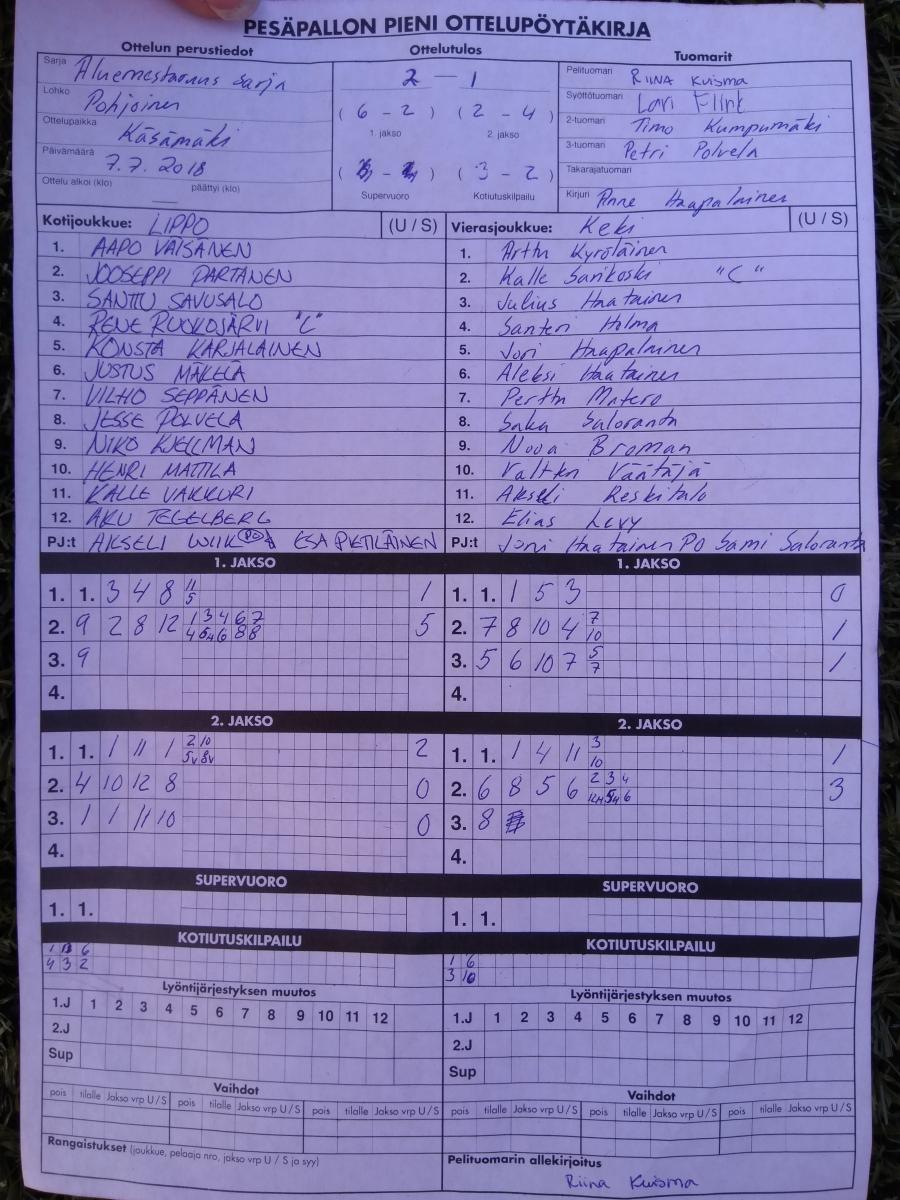 PESÄPALLON PIENI OTTELUPÖYTÄKIRJA
Ottelun perustiedot
Sarja Aluemestaruus sarja
Lohko Pohjoinen
Ottelupaikka Käsämäki
Päivämäärä 7.7.2018
Ottelu alkoi (klo) — päättyi (klo)
Ottelutulos
2 – 1
( 6 – 2 ) ( 2 – 4 )
1. jakso 2. jakso
( – ) ( 3 – 2 )
Supervuoro Kotiutuskilpailu
Tuomarit
Pelituomari RIINA Kuisma
Syöttötuomari Lari Flink
2-tuomari Timo Kumpumäki
3-tuomari Petri Polvela
Takarajatuomari
Kirjuri Anne Haapalainen
Kotijoukkue: LIPPO (U / S)
1. AAPO VÄISÄNEN
2. JOOSEPPI PARTANEN
3. SANTTU SAVUSALO
4. RENE RUOKOJÄRVI "C"
5. KONSTA KARJALAINEN
6. JUSTUS MÄKELÄ
7. VILHO SEPPÄNEN
8. JESSE POLVELA
9. NIKO KJELLMAN
10. HENRI MATTILA
11. KALLE VAKKURI
12. AKU TEGELBERG
PJ:t AKSELI WIIK PO & ESA PIETILÄINEN
Vierasjoukkue: Keki (U / S)
1. Arttu Kyröläinen
2. Kalle Sarikoski "C"
3. Julius Haatainen
4. Santeri Holma
5. Joni Haapalainen
6. Aleksi Haatainen
7. Perttu Matero
8. Saku Saloranta
9. Nooa Broman
10. Valtteri Väätäjä
11. Akseli Reskitalo
12. Elias Levy
PJ:t Joni Haatainen PO Sami Saloranta
1. JAKSO
1. 1. 3 4 8 11 1
5
2. 9 2 8 12 1 3 4 6 7 5
4 5H 6 8 8
3. 9
4.
1. JAKSO
1. 1. 1 5 3 0
2. 7 8 10 4 7 1
10
3. 5 6 10 7 5 1
7
4.
2. JAKSO
1. 1. 1 11 1 2 10 2
5v 8v
2. 4 10 12 8 0
3. 1 1 11 10 0
4.
2. JAKSO
1. 1. 1 4 11 3 1
10
2. 6 8 5 6 2 3 4 3
12H 5H 6
3. 8
4.
SUPERVUORO
1. 1.
SUPERVUORO
1. 1.
KOTIUTUSKILPAILU
1 6
4 3 2
KOTIUTUSKILPAILU
1 6
3 10
Lyöntijärjestyksen muutos
1.J 1 2 3 4 5 6 7 8 9 10 11 12
2.J
Sup
Lyöntijärjestyksen muutos
1.J 1 2 3 4 5 6 7 8 9 10 11 12
2.J
Sup
Vaihdot
pois tilalle Jakso vrp U / S pois tilalle Jakso vrp U / S pois tilalle Jakso vrp U / S
Vaihdot
pois tilalle Jakso vrp U / S pois tilalle Jakso vrp U / S pois tilalle Jakso vrp U / S
Rangaistukset (joukkue, pelaaja nro, jakso vrp U / S ja syy)
Pelituomarin allekirjoitus
Riina Kuisma